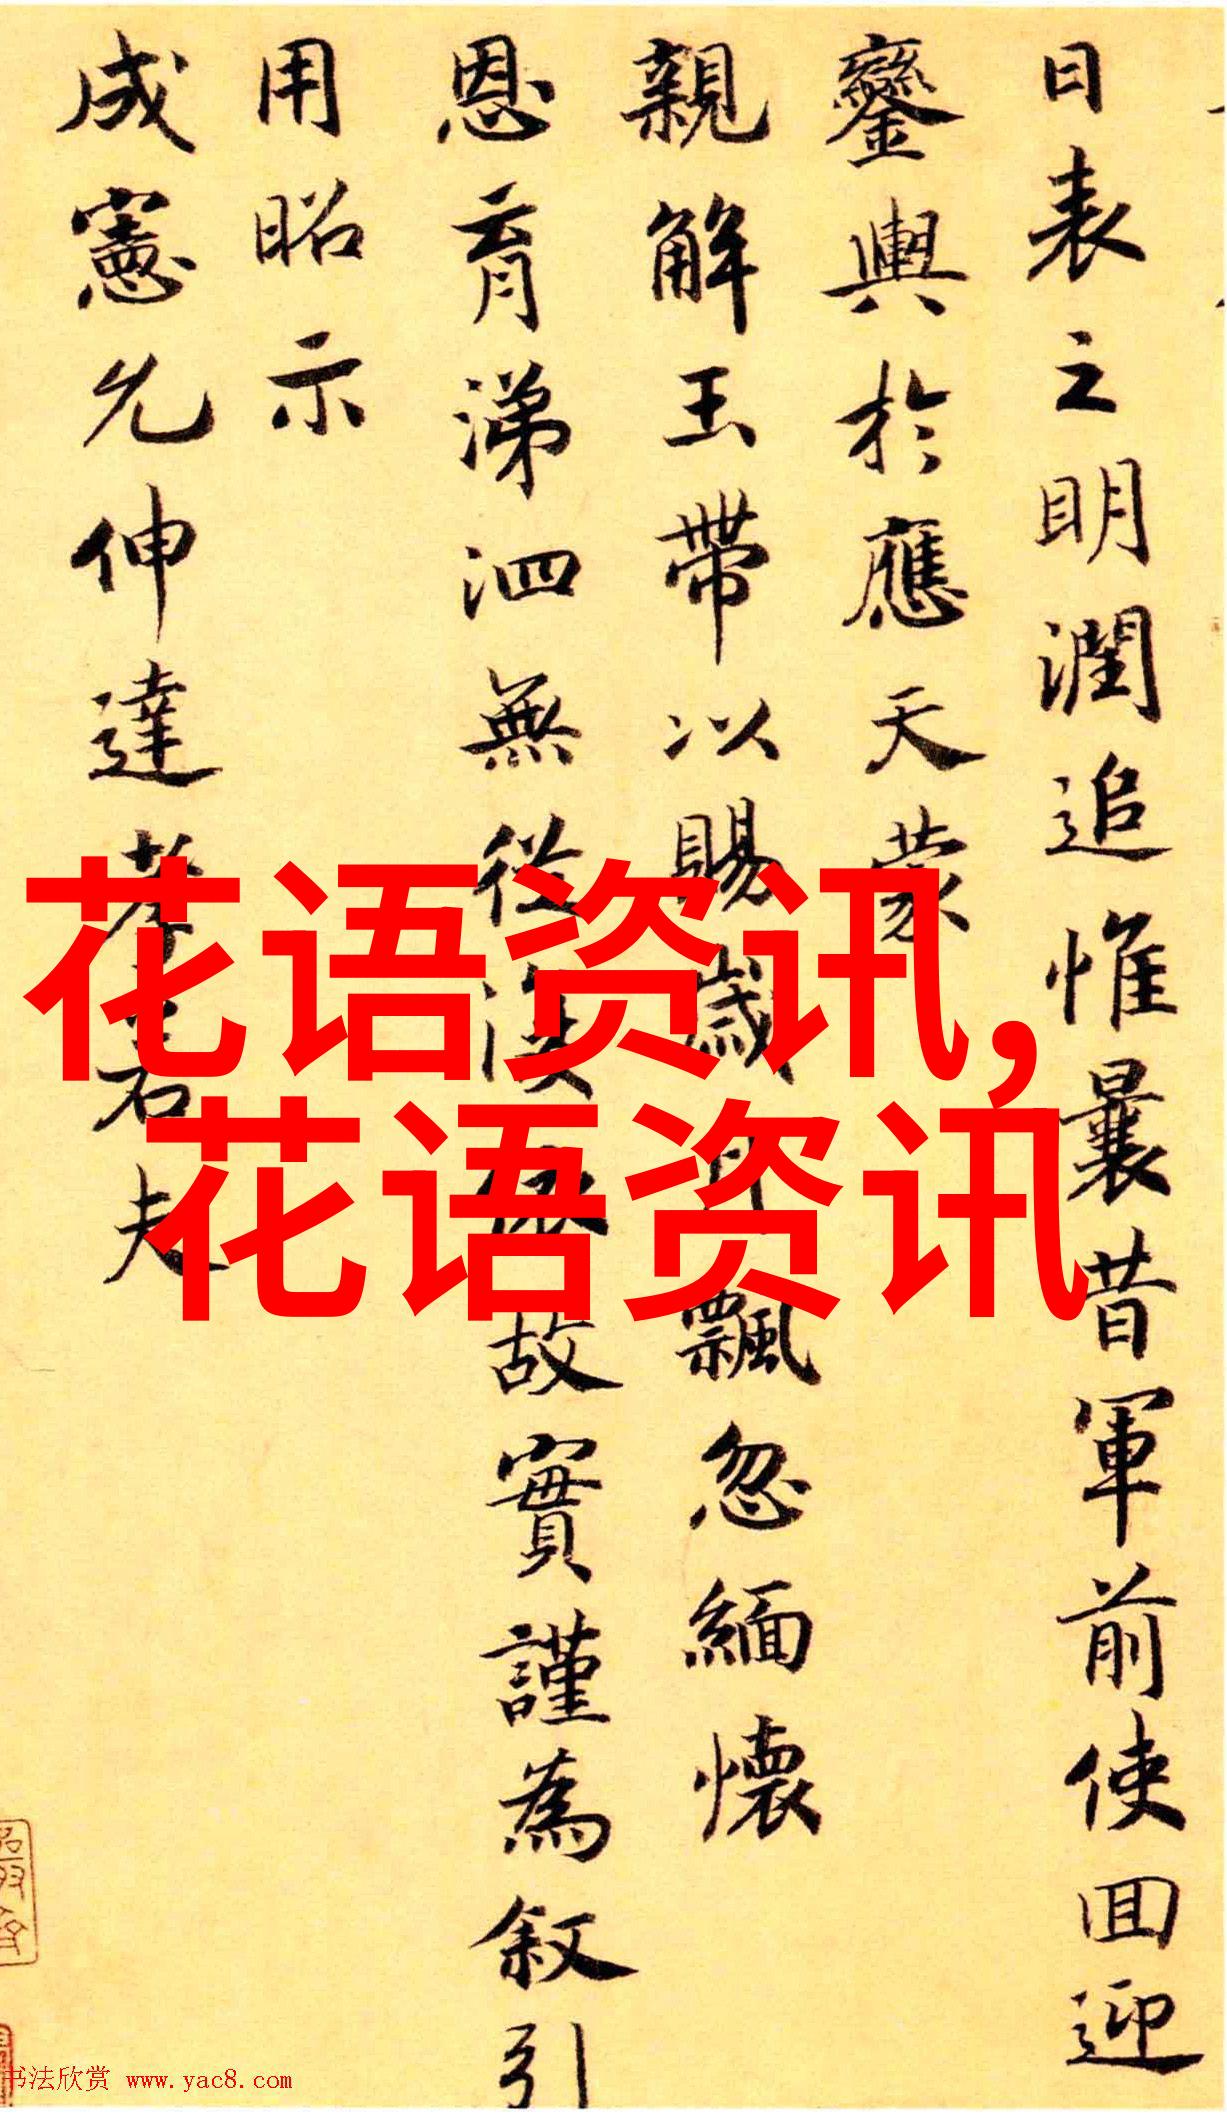 日表之明潤追惟曩昔軍前使回迎
鑾輿於應天蒙
親解玉帶以賜歲月飄忽緬懷
恩育涕泗無從漢 故實謹為叙引
用昭示
成憲允伸達孝若夫
花语资讯,
花语资讯
书法欣赏 www.yac8.com